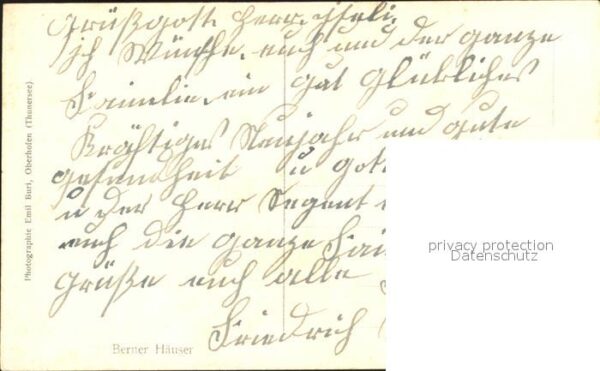 Grüßgott Herr Yseli.
ich Wünsche euch und der ganze
Familie ein gut Glükliches
Kräftiges Neujahr und gute
gesundheit u Got
u der Herr Segent
euch die ganze Fa
Grüße euch alle
Friedrich
Berner Häuser
Photographie Emil Buri, Oberhofen (Thunersee)
privacy protection
Datenschutz